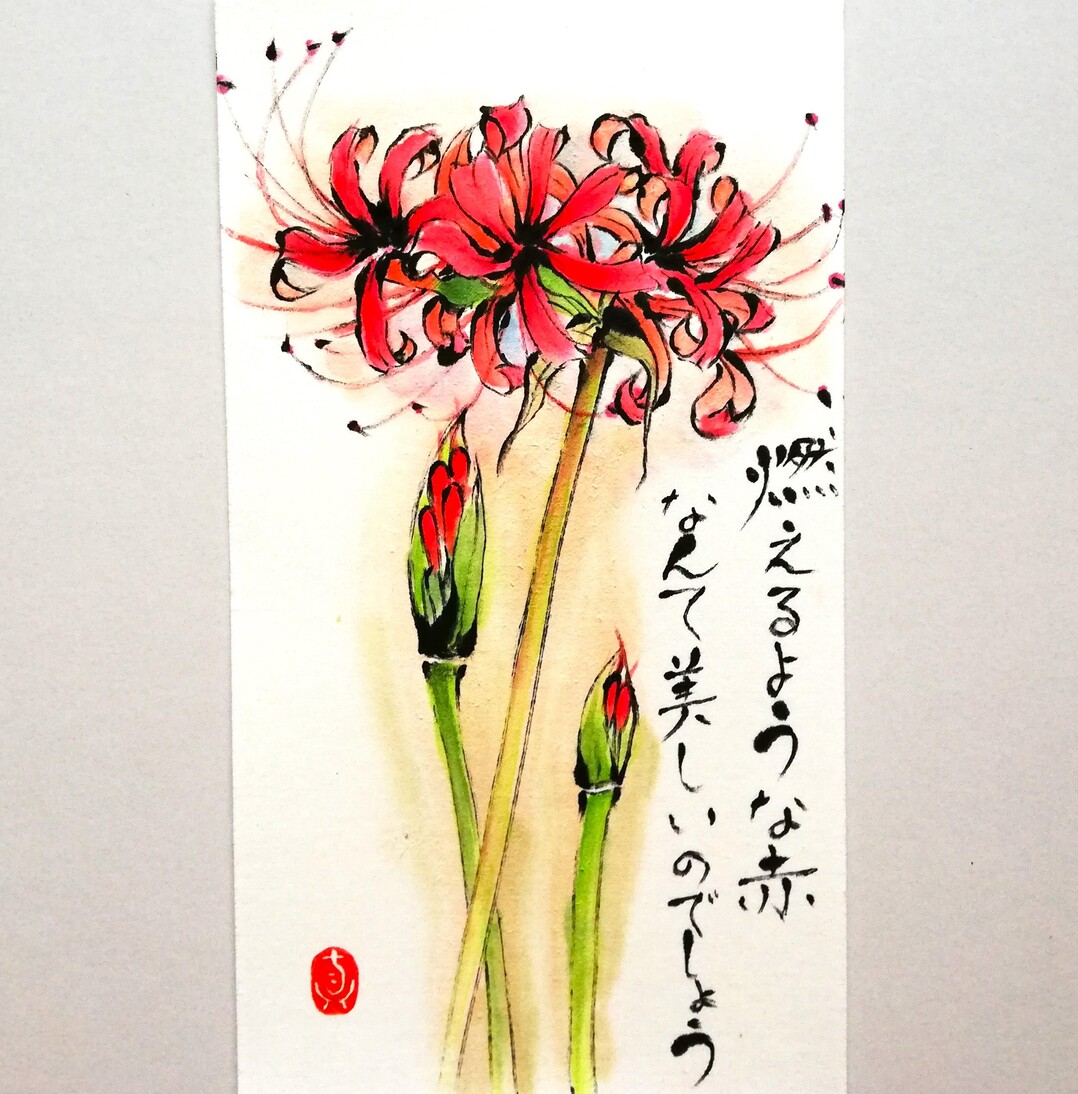 燃えるような赤
なんて美しいのでしょう